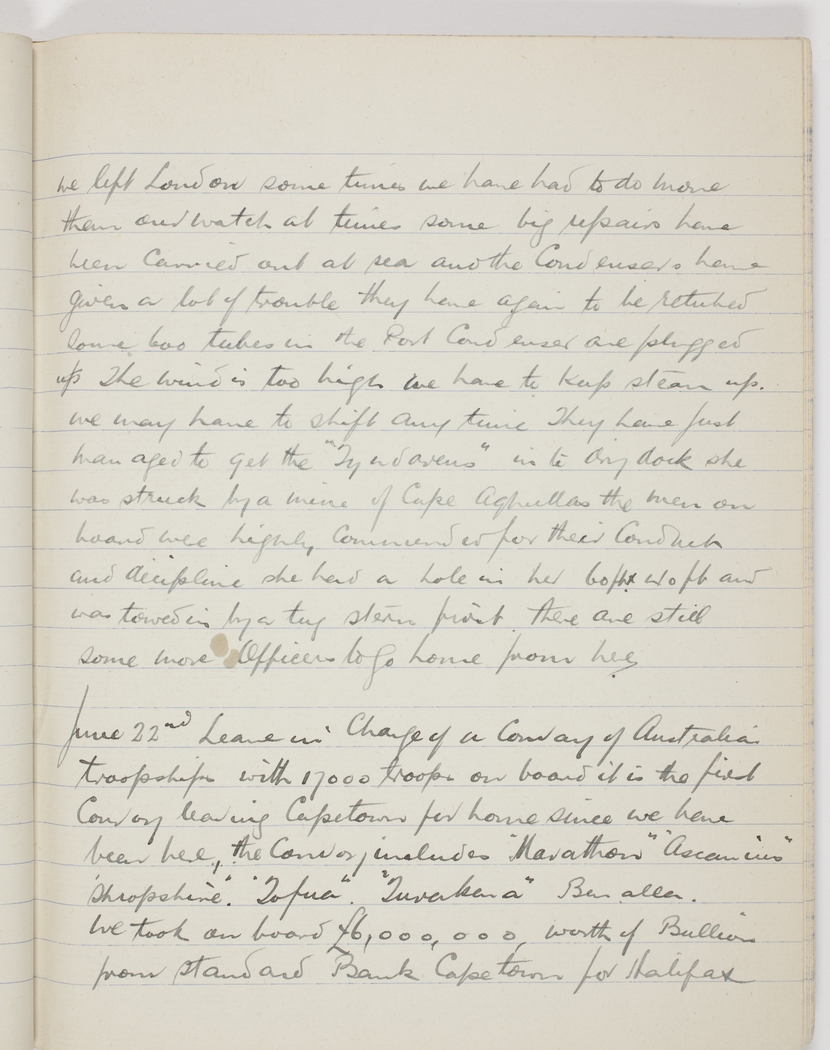 we left London some times we have had to do more
than our watch at times some big repairs have
been Carried out at sea and the Condensers have
given a lot of trouble they have again to be retubed
some 600 tubes in the Port Condenser are plugged
up The wind is too high we have to keep steam up.
we may have to shift any time They have just
managed to get the "Tyndareus" in to dry dock she
was struck by a mine of Cape Aghullas the men on
board wee highly, Commended for their Conduct
and decipline she had a hole in her 60ft x 40ft and
was towed in by a tug stern first there are still
some more Officers to go home from hee
June 22nd Leave in Charge of a Convoy of Australian
troopships with 17000 troops on board it is the first
Convoy leaving Capetown for home since we have
been hee, the Convoy includes "Marathon" "Ascanius"
"Shropshire". "Tofua". "Turakena" Benalla.
We took on board £6,000,000, worth of Bullion
from standard Bank Capetown for Halifax